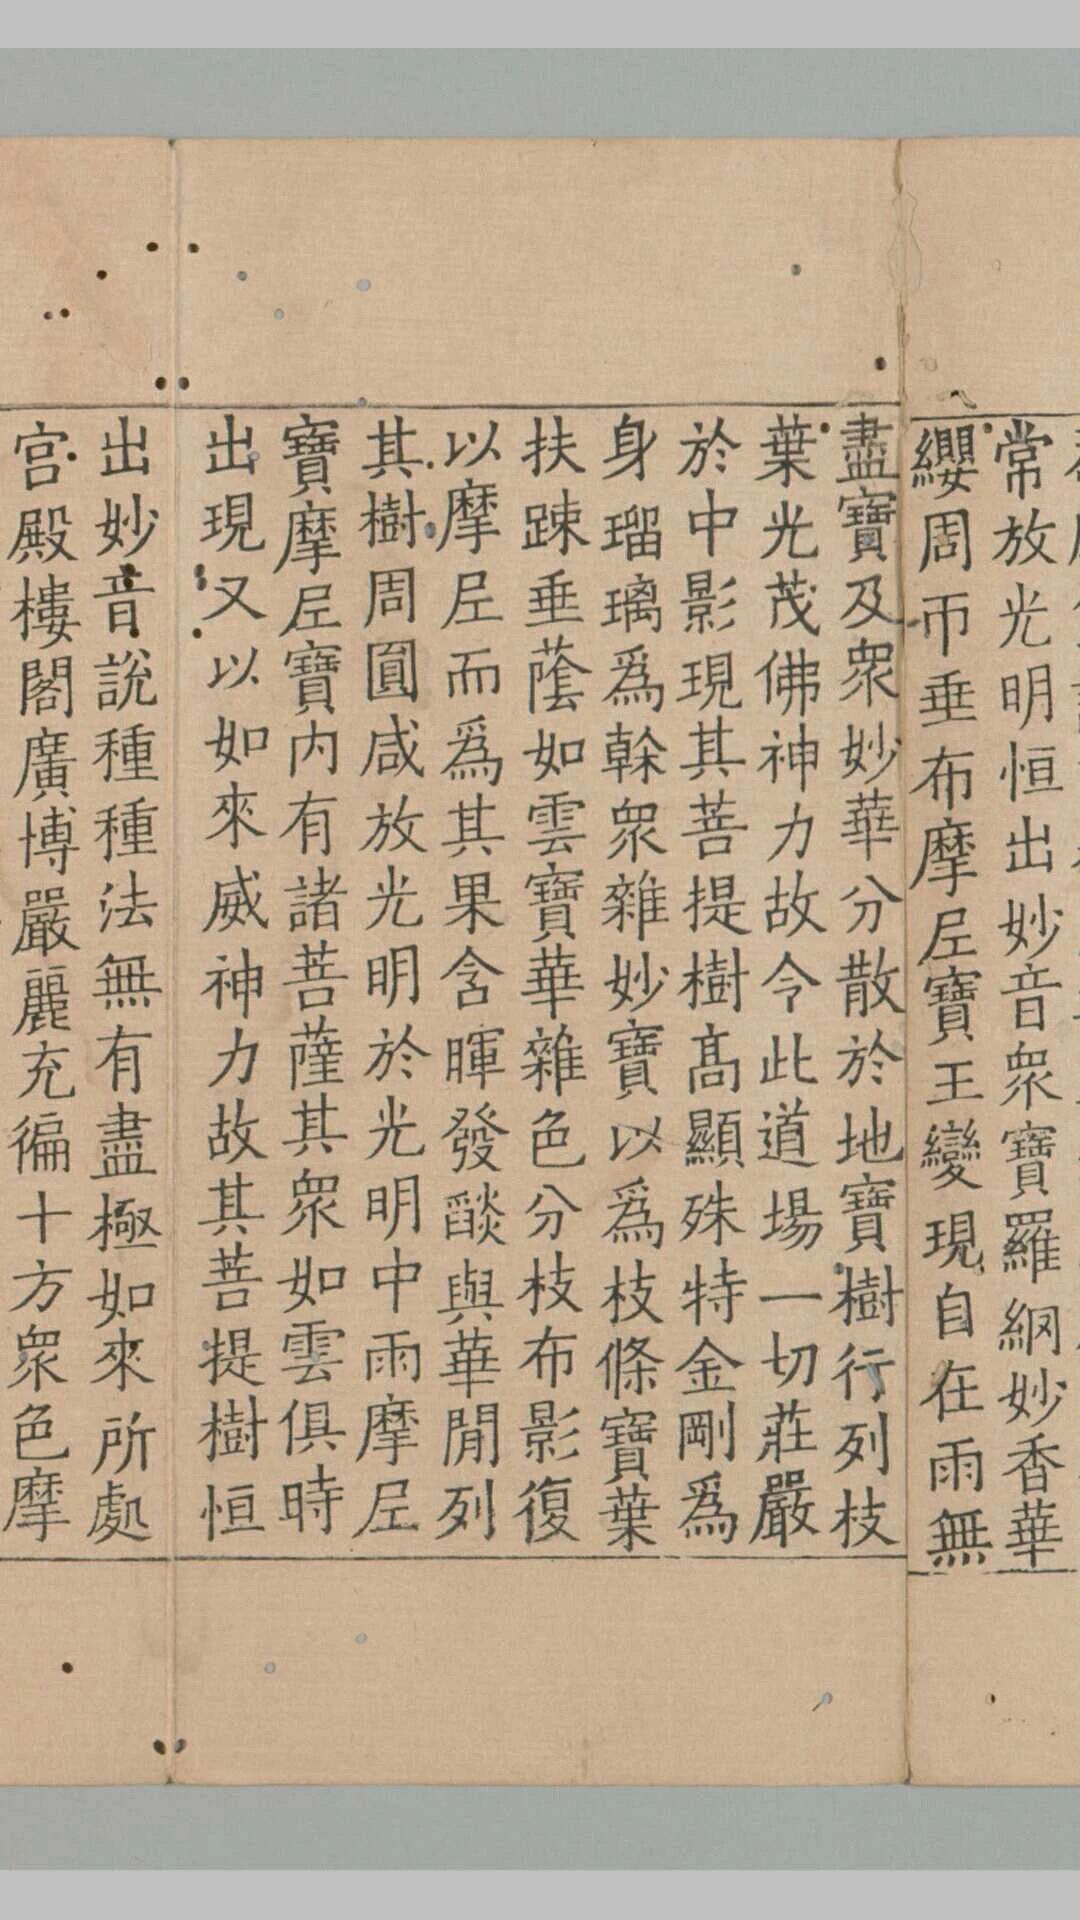 常放光明恒出妙音衆寶羅網妙香華
纓周帀垂布摩尼寶王變現自在雨無
盡寶及衆妙華分散於地寶樹行列枝
葉光茂佛神力故令此道場一切莊嚴
於中影現其菩提樹髙顯殊特金剛爲
身瑠璃爲幹衆雜妙寶以爲枝條寶葉
扶踈垂蔭如雲寶華雜色分枝布影復
以摩尼而爲其果含暉發燄與華閒列
其樹周圓咸放光明於光明中雨摩尼
寶摩尼寶内有諸菩薩其衆如雲俱時
出現又以如來威神力故其菩提樹恒
出妙音說種種法無有盡極如來所處
宫殿樓閣廣博嚴麗充徧十方衆色摩